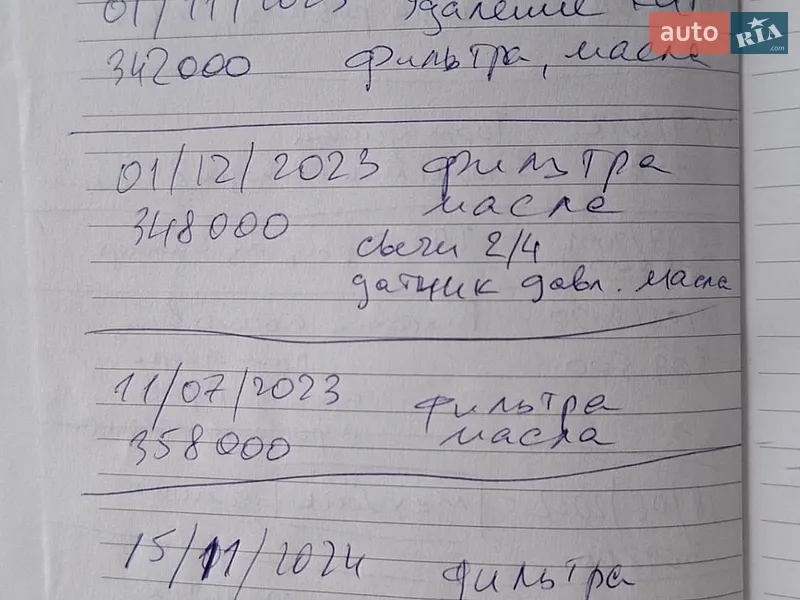 01/11/2023 Удаление кат
342000 Фильтра, масла
01/12/2023 Фильтра
масле
348000
свечи 2/4
датчик давл. масла
11/07/2023 Фильтра
358000 масла
15/11/2024 Фильтра
auto RIA .com